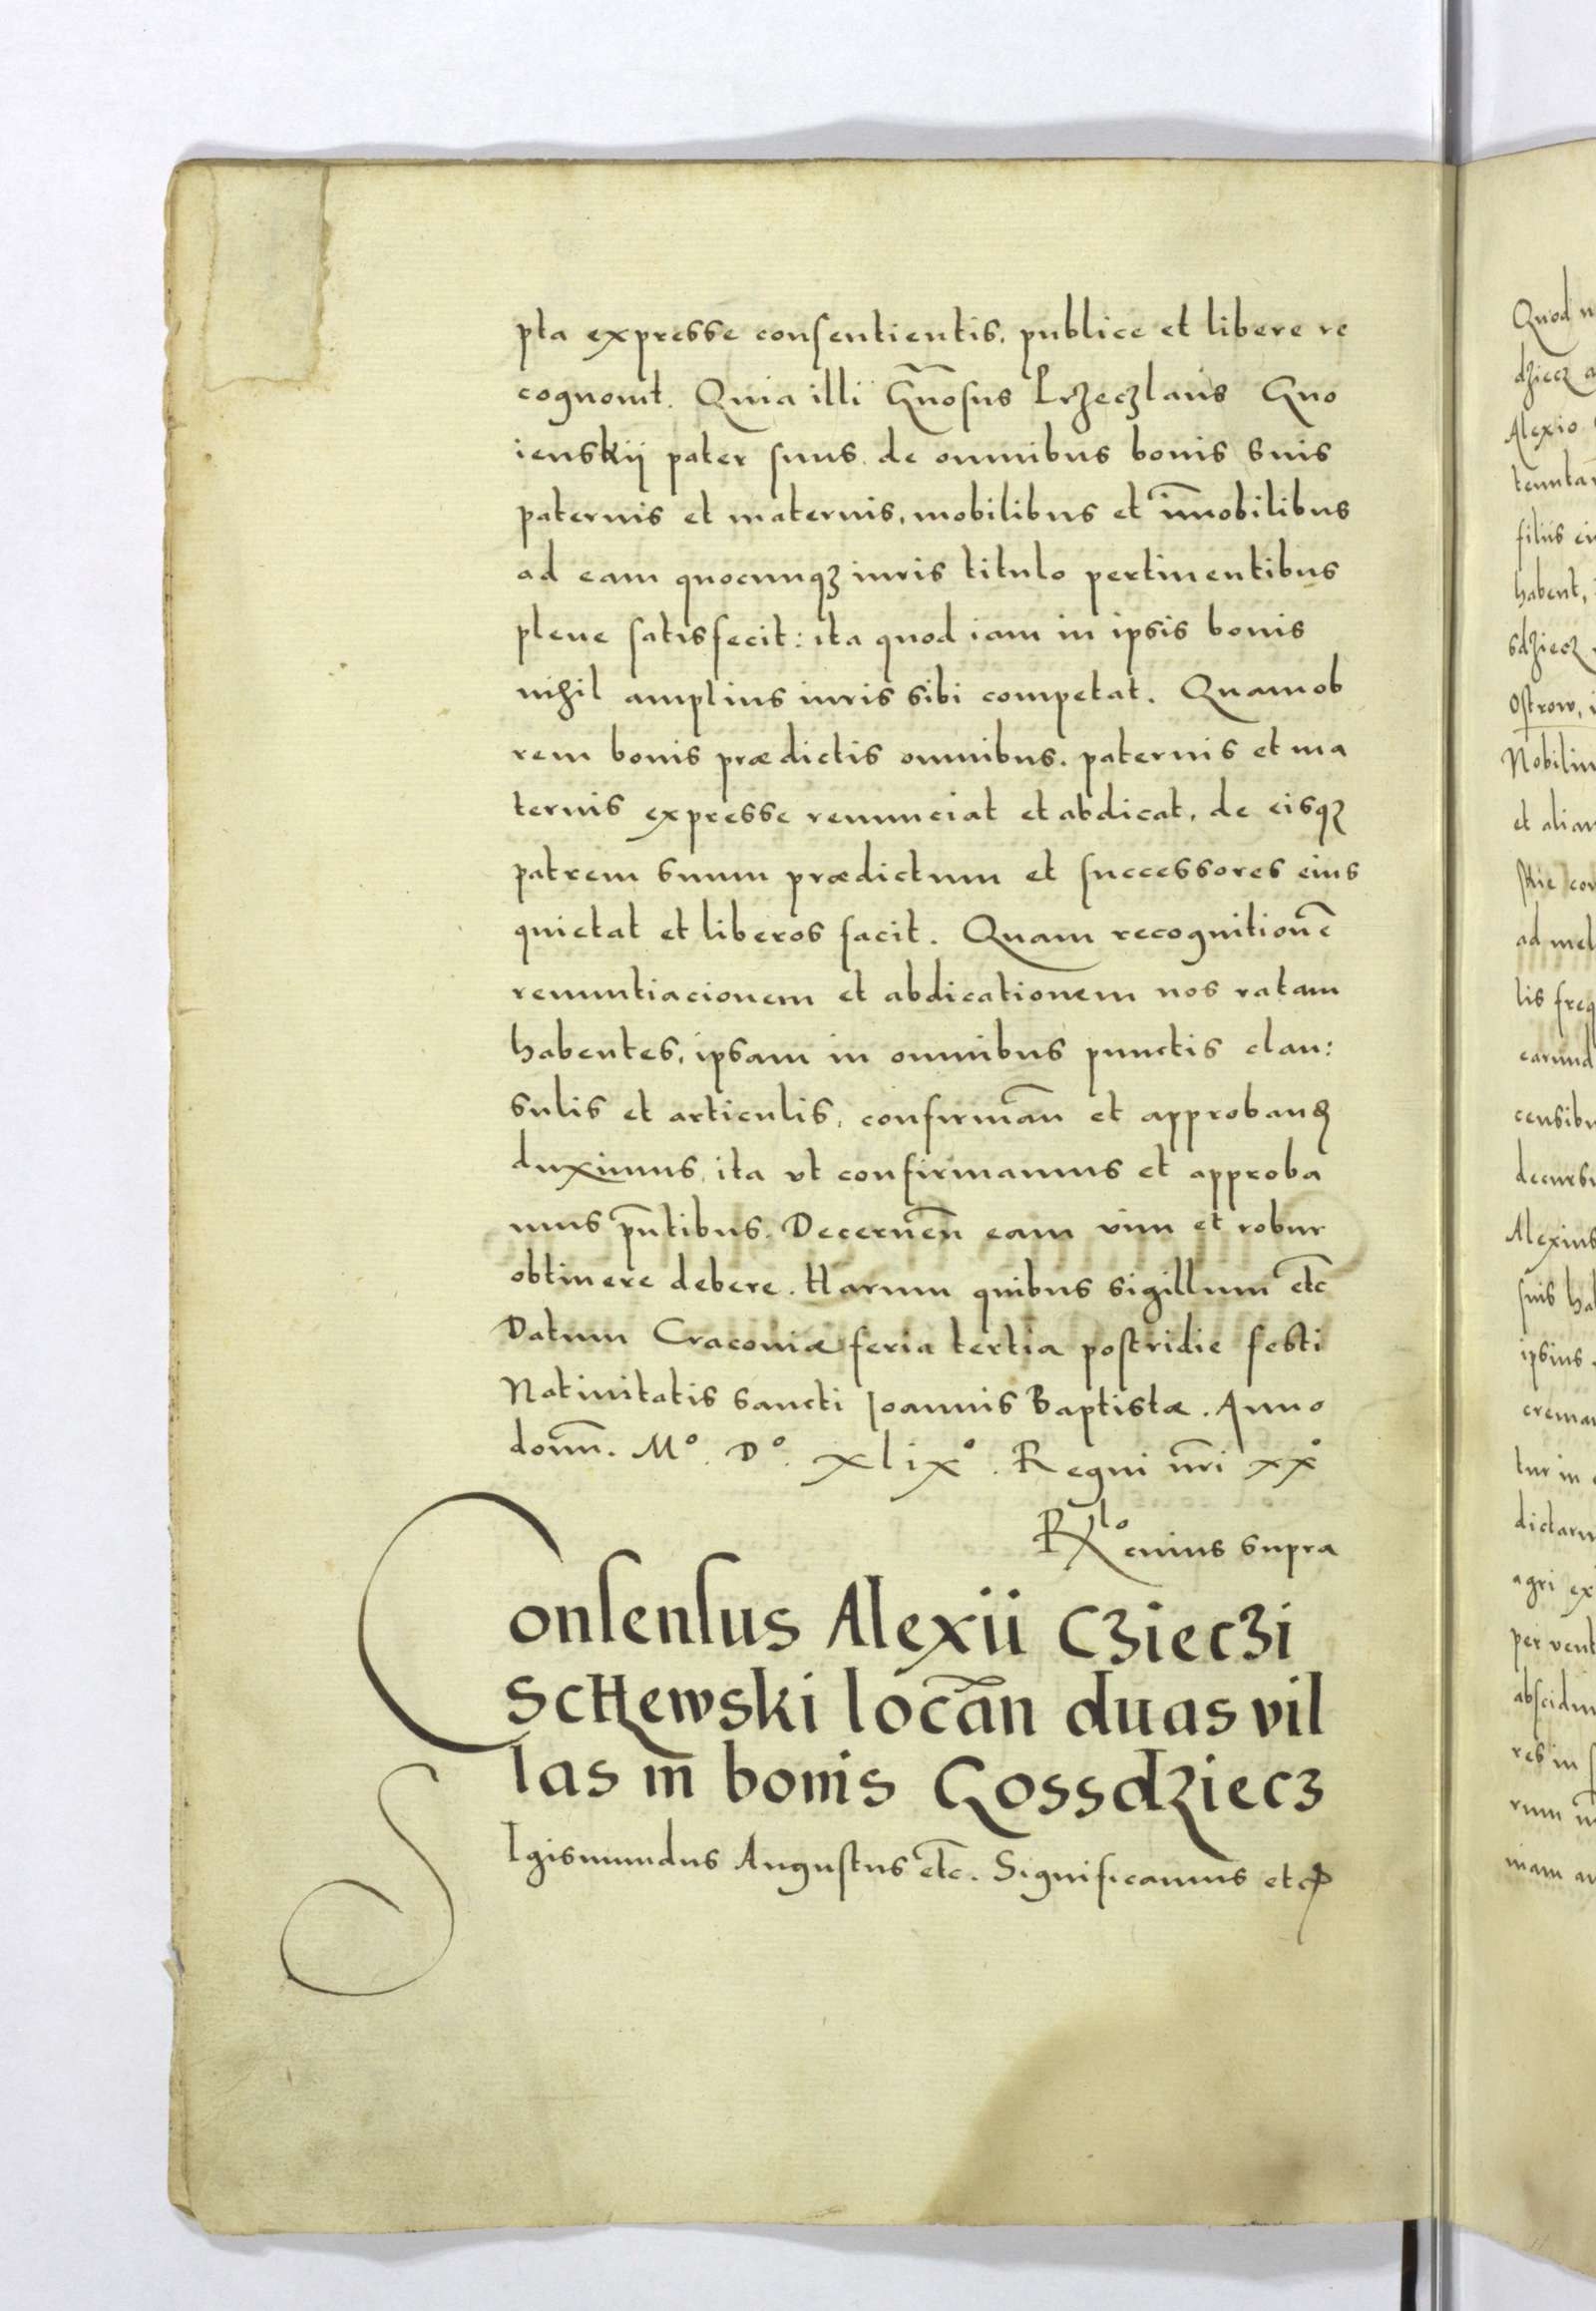 pta expresse consentientis, publice et libere re
cognouit. Quia illi Gn̄osus Przeczlaus Gno
ienskij pater suus de omnibus bonis suis
paternis et maternis, mobilibus et im̄obilibus
ad eam quocunqꝫ iuris titulo pertinentibus
plene satisfecit: ita quod iam in ipsis bonis
nihil amplius iuris sibi competat. Quamob
rem bonis prædictis omnibus, paternis et ma
ternis expresse renunciat et abdicat, de eisqꝫ
patrem suum prædictum et successores eius
quietat et liberos facit. Quam recognitionē
renuntiacionem et abdicationem nos ratam
habentes, ipsam in omnibus punctis clau:
sulis et articulis, confirmān et approbanꝺ
duximus, ita vt confirmamus et approba
mus pn̄tibus. Decernēn eam vim et robur
obtinere debere. Harum quibus sigillum etc̄
Datum Cracouiæ feria tertia postridie festi
Natiuitatis sancti Joannis Baptistæ. Anno
domī. Mº. Dº. xlixº. Regni nr̄i xxº
Rlº cuius supra
Consensus Alexii Czieczi
Schewski locān duas vil
las in bonis Gossdziecz
SIgismundus Augustus etc̄. Significamus etcꝭ
Quod
dziecz
Alexio
habent,
sdziecz
Ostrow,
et
ad
lis
Alexius
suis
ipsius
tur in
agri
per
res in